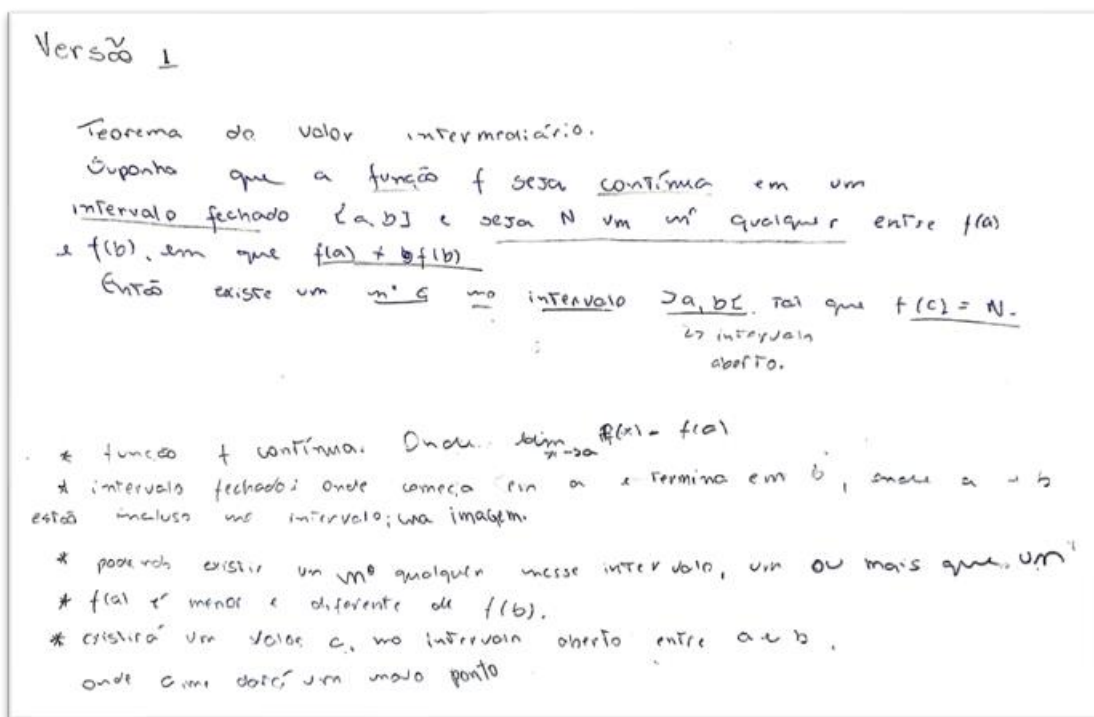 Versão 1
Teorema do valor intermediário.
Suponha que a função f seja contínua em um
intervalo fechado [a, b] e seja N um nº qualquer entre f(a)
e f(b), em que f(a) ≠ f(b)
Então existe um nº c no intervalo ]a, b[ tal que f(c) = N.
↳ intervalo
aberto.
* função f contínua. Onde lim x→a f(x) = f(a)
* intervalo fechado: onde começa em a e termina em b, onde a e b
estão incluso no intervalo; imagem.
* poderá existir um nº qualquer nesse intervalo, um ou mais que um
* f(a) é menor e diferente de f(b).
* existirá um valor c, no intervalo aberto entre a e b,
onde c me dará um novo ponto